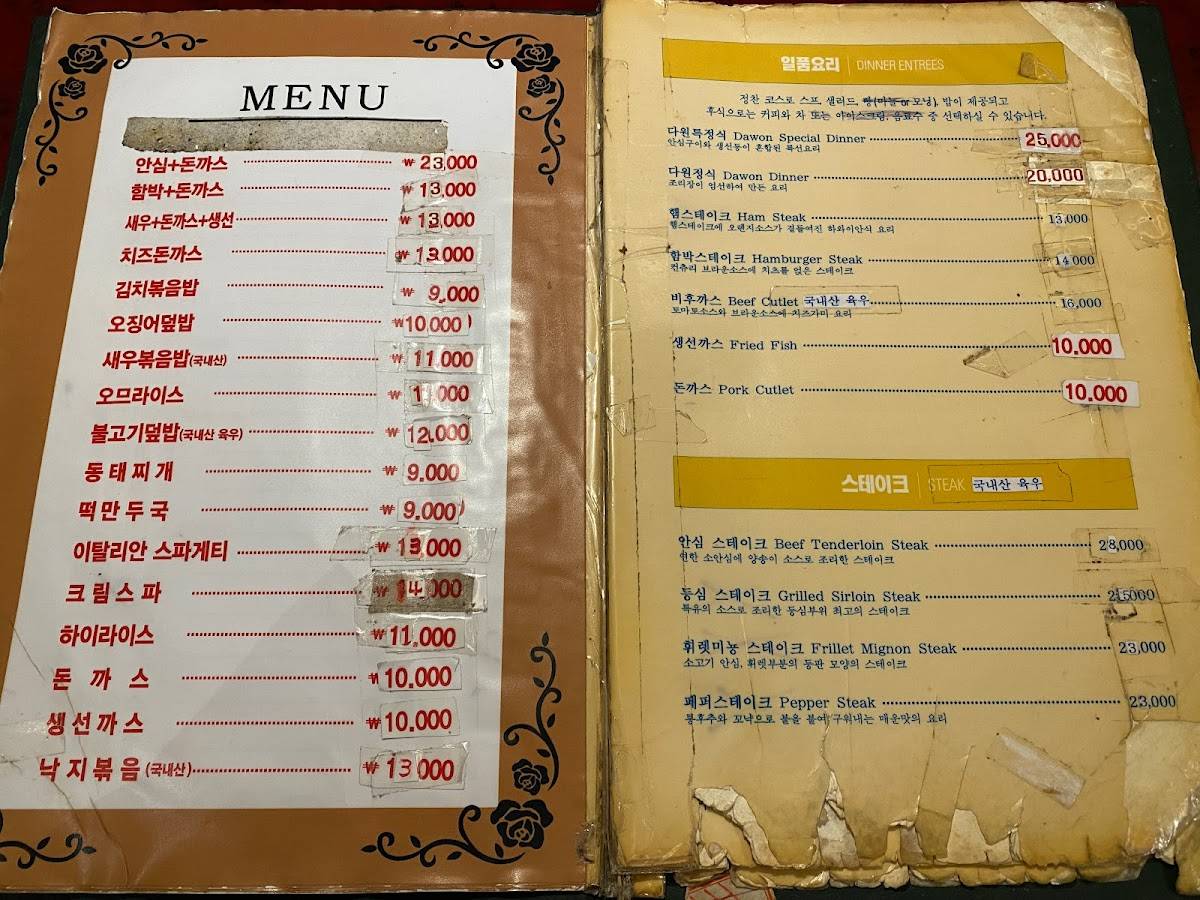 MENU
안심+돈까스 ₩ 23,000
함박+돈까스 ₩ 13,000
새우+돈까스+생선 ₩ 13,000
치즈돈까스 ₩ 13,000
김치볶음밥 ₩ 9,000
오징어덮밥 ₩10,000
새우볶음밥(국내산) ₩ 11,000
오므라이스 ₩ 11,000
불고기덮밥(국내산 육우) ₩ 12,000
동태찌개 ₩ 9.000
떡만두국 ₩ 9.000
이탈리안 스파게티 ₩ 13,000
크림스파 ₩ 14,000
하이라이스 ₩11,000
돈 까 스 ₩10.000
생선까스 ₩10.000
낙지볶음(국내산) ₩ 13 000
일품요리 | DINNER ENTREES
정찬 코스로 스프, 샐러드, 빵(마늘 or 모닝), 밥이 제공되고
후식으로는 커피와 차 또는 아이스크림, 음료수 중 선택하실 수 있습니다.
다원특정식 Dawon Special Dinner 25,000
안심구이와 생선등이 혼합된 특선요리
다원정식 Dawon Dinner 20,000
조리장이 엄선하여 만든 요리
햄스테이크 Ham Steak 13,000
햄스테이크에 오렌지소스가 곁들여진 하와이안식 요리
함박스테이크 Hamburger Steak 14,000
컨츄리 브라운소스에 치즈를 얹은 스테이크
비후까스 Beef Cutlet 국내산 육우 16,000
토마토소스와 브라운소스에 치즈가미 요리
생선까스 Fried Fish 10.000
돈까스 Pork Cutlet 10.000
스테이크 | STEAK 국내산 육우
안심 스테이크 Beef Tenderloin Steak 28,000
연한 소안심에 양송이 소스로 조리한 스테이크
등심 스테이크 Grilled Sirloin Steak
특유의 소스로 조리한 등심부위 최고의 스테이크
휘렛미뇽 스테이크 Frillet Mignon Steak 23,000
소고기 안심, 휘렛부분의 등판 모양의 스테이크
페퍼스테이크 Pepper Steak 23,000
통후추와 꼬냑으로 불을 붙여 구워내는 매운맛의 요리